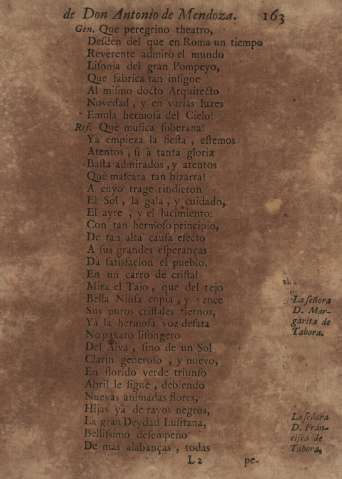 de Don Antonio de Mendoza. 163
Gen. Que peregrino theatro,
Desden del que en Roma un tiempo
Reverente admirò el mundo
Lisonja del gran Pompeyo,
Que fabrica tan insigne
Al mismo docto Arquitecto
Novedad, y en varias luzes
Emula hermosa del Cielo!
Ris. Que musica soberana!
Ya empieza la fiesta, estemos
Atentos, si à tanta gloria
Basta admirados, y atentos
Que mascara tan bizarra!
A cuyo trage rindieron
El Sol, la gala, y cuidado,
El ayre, y el lucimiento:
Con tan hermoso principio,
De tan alta causa efecto
A sus grandes esperanças
Da satisfacion el pueblo.
En un carro de cristal
Mira el Tajo, que del tejo
Bella Ninfa copia, y vence
Sus puros cristales tiernos,
Ya la hermosa voz desata
No paxaro lisongero
Del Alva, sino de un Sol
Clarin generoso, y nuevo,
En florido verde triunfo
Abril le sigue, debiendo
Nuevas animadas flores,
Hijas ya de rayos negros,
La gran Deydad Lusitana,
Bellissimo desempeño
De mas alabanças, todas
L2 pe-
La señora
D. Mar-
garita de
Tabora.
La señora
D. Fran-
cisca de
Tabora.